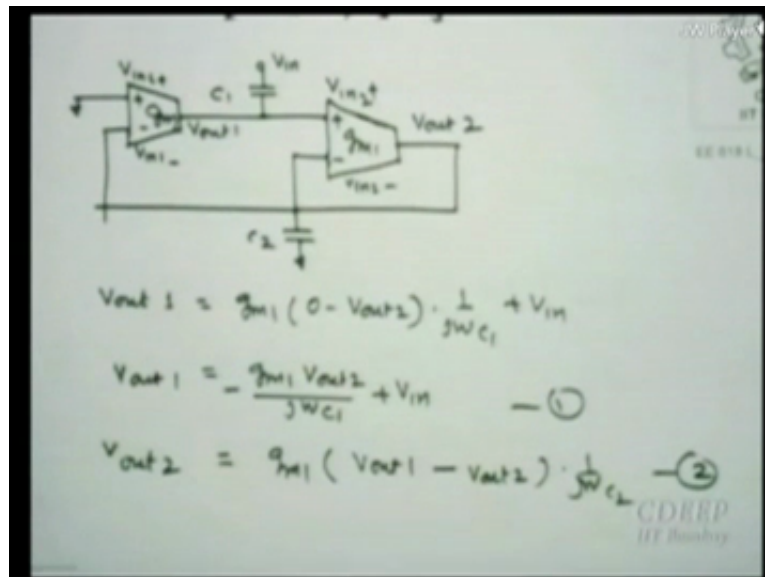 JW Player
Vin1+
C1
Vin
Vin2+
+
gm
Vout1
-
Vin1-
+
gm1
-
Vout 2
Vin2-
C2
EE 619 L
Vout 1 = gm1 ( 0 - Vout2 ) . 1/jWC1 + Vin
Vout 1 = - gm1 Vout2/jWC1 + Vin — ①
Vout 2 = gm1 ( Vout1 - Vout2 ) . 1/jWC2 — ②
CDEEP
IIT Bombay